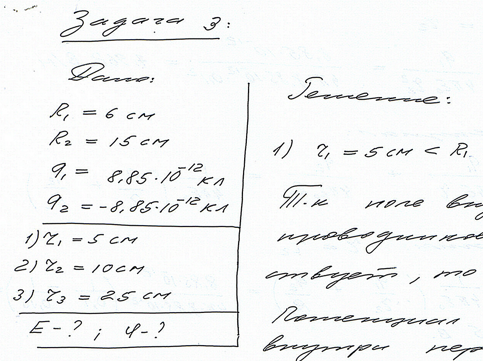 Задача 3:
Дано:
R₁ = 6 см
R₂ = 15 см
q₁ = 8,85·10⁻¹² кл
q₂ = -8,85·10⁻¹² кл
1) τ₁ = 5 см
2) τ₂ = 10 см
3) τ₃ = 25 см
E - ? ; φ - ?
Решение:
1) τ₁ = 5 см < R₁
Т.к поле вну
проводников
ствует, то
Потенциал
внутри пер